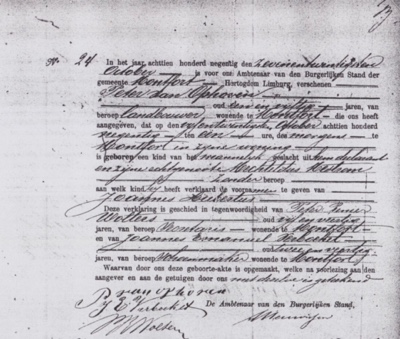 No. 24
In het jaar achttien honderd negentig den zevenentwintigsten
October is voor ons Ambtenaar van den Burgerlijken Stand der
gemeente Montfort Hertogdom Limburg, verschenen
Peter van Ophoven
oud een en vijftig jaren, van
beroep landbouwer wonende te Montfort die ons heeft
aangegeven, dat op October achttien honderd
negentig ten ure, des morgens
Montfort in zijne woning
is geboren een kind van het mannelijk geslacht uit hem declarant
en zijne echtgenoote Mechtildis
zonder beroep
aan welk kind hij heeft verklaard de voornamen te geven van
Joannes Hubertus
Deze verklaring is geschied in tegenwoordigheid van Peter
Wolters oud vijf en veertig
jaren, van beroep Notaris wonende te Montfort
en van Joannes Emanuel Verbeket
oud en veertig
jaren, van beroep Schoenmaker wonende te Montfort
Waarvan door ons deze geboorte-akte is opgemaakt, welke na voorlezing aan den
aangever en aan de getuigen door ons met dezelve is geteekend
P. van Ophoven
J E Verbeket De Ambtenaar van den Burgerlijken Stand,
Wolters